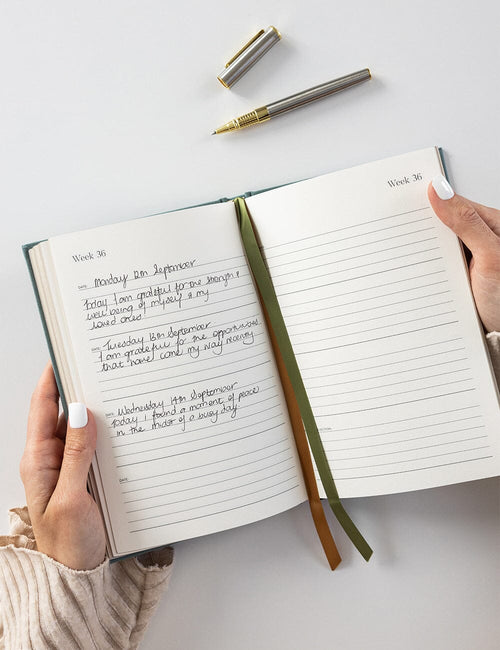 Week 36
DATE Monday 12th September
Today I am grateful for the strength &
well being of myself & my
loved ones!
DATE Tuesday 13th September
I am grateful for the opportunities
that have come my way recently.
DATE Wednesday 14th September
Today I found a moment of peace
in the midst of a busy day.
DATE
Week 36